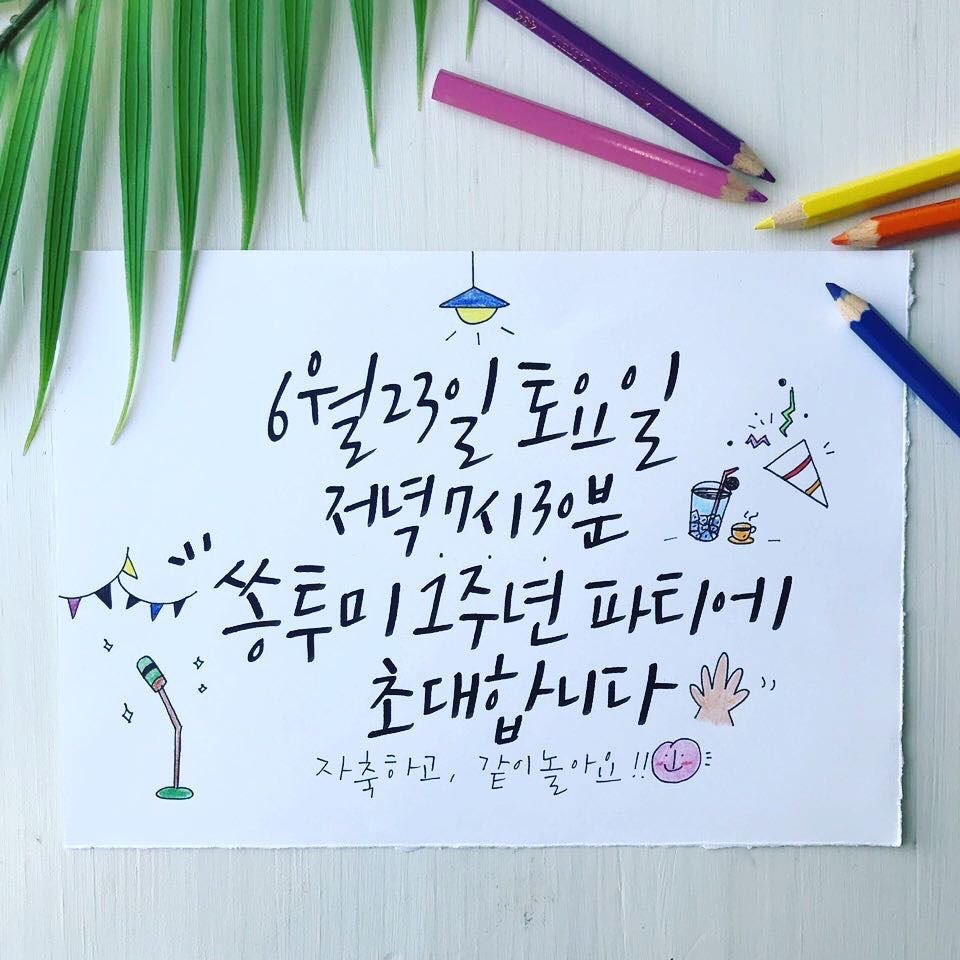 6월23일 토요일
저녁 7시30분
쏭투미 1주년 파티에
초대합니다
자축하고, 같이놀아요!!